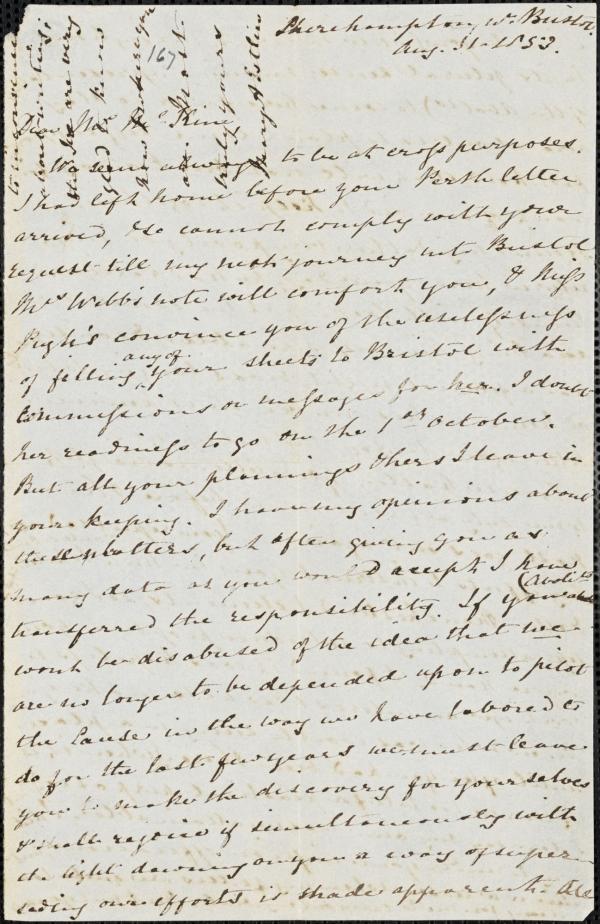 Shirehampton, nr. Bristol.
Aug. 31. 1853.
167
Dear Mr. McKim
We seem always to be at cross purposes.
I had left home before your Perth letter
arrived, & so cannot comply with your
request till my next journey into Bristol
Mrs Webb's note will comfort you, & Miss
Pugh's convince you of the uselessness
of filling any of your sheets to Bristol with
commissions or messages for her. I doubt
her readiness to go on the 1st October.
But all your plannings & hers I leave in
your keeping. I have my opinions about
these matters, but after giving you as
many data as you would accept I have
transferred the responsibility. If you
wont be disabused of the idea that we
are no longer to be depended upon to pilot
the Cause in the way we have labored to
do for the last few years we must leave
you to make the discovery for yourselves
& shall rejoice if simultaneously with
its light dawning on you a way of super-
seding our efforts is made apparent. All
about writing;
We are very
glad to know
how & where you
are. Most
truly yours
Mary A Estlin